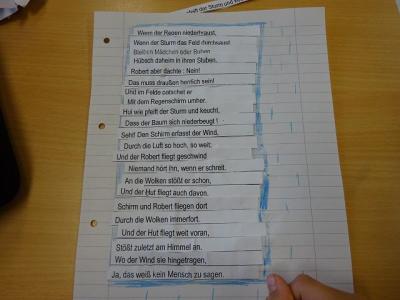 Sturm und
Wenn der Regen niederbraust,
Wenn der Sturm das Feld durchsaust
Bleiben Mädchen oder Buben
Hübsch daheim in ihren Stuben.
Robert aber dachte: Nein!
Das muss draußen herrlich sein!
Und im Felde patschet er
Mit dem Regenschirm umher.
Hui wie pfeift der Sturm und keucht,
Dass der Baum sich niederbeugt!
Seht! Den Schirm erfasst der Wind,
Durch die Luft so hoch, so weit;
Und der Robert fliegt geschwind
Niemand hört ihn, wenn er schreit.
An die Wolken stößt er schon,
Und der Hut fliegt auch davon.
Schirm und Robert fliegen dort
Durch die Wolken immerfort.
Und der Hut fliegt weit voran,
Stößt zuletzt am Himmel an.
Wo der Wind sie hingetragen,
Ja, das weiß kein Mensch zu sagen.